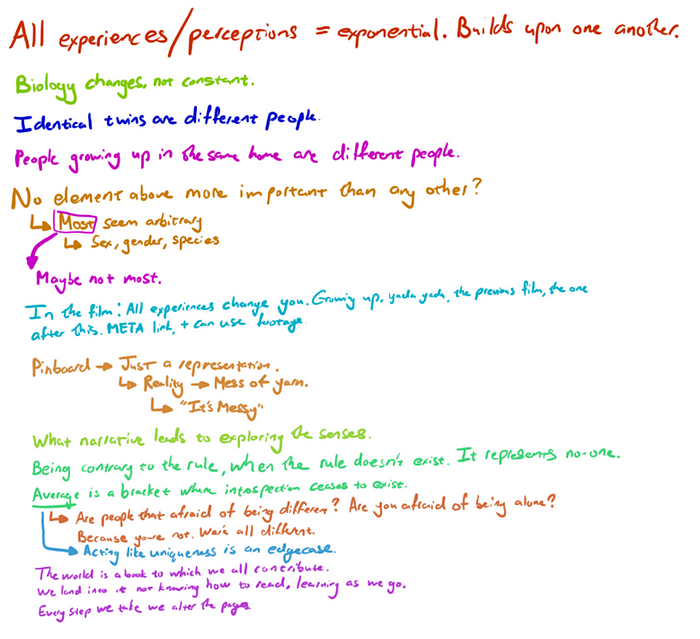 All experiences/perceptions = exponential. Builds upon one another.
Biology changes, not constant.
Identical twins are different people.
People growing up in the same home are different people.
No element above more important than any other?
↳ Most seem arbitrary
↳ Sex, gender, species
Maybe not most.
In the film: All experiences change you. Growing up, yada yada, the previous film, the one
after this. META link, + can use footage
Pinboard → Just a representation.
↳ Reality → Mess of yarn.
↳ "It's Messy"
What narrative leads to exploring the senses.
Being contrary to the rule, when the rule doesn't exist. It represents no-one.
Average is a bracket where introspection ceases to exist.
↳ Are people that afraid of being different? Are you afraid of being alone?
Because you're not. We're all different.
→ Acting like uniqueness is an edgecase.
The world is a book to which we all contribute.
We land into it not knowing how to read, learning as we go.
Every step we take we alter the pages